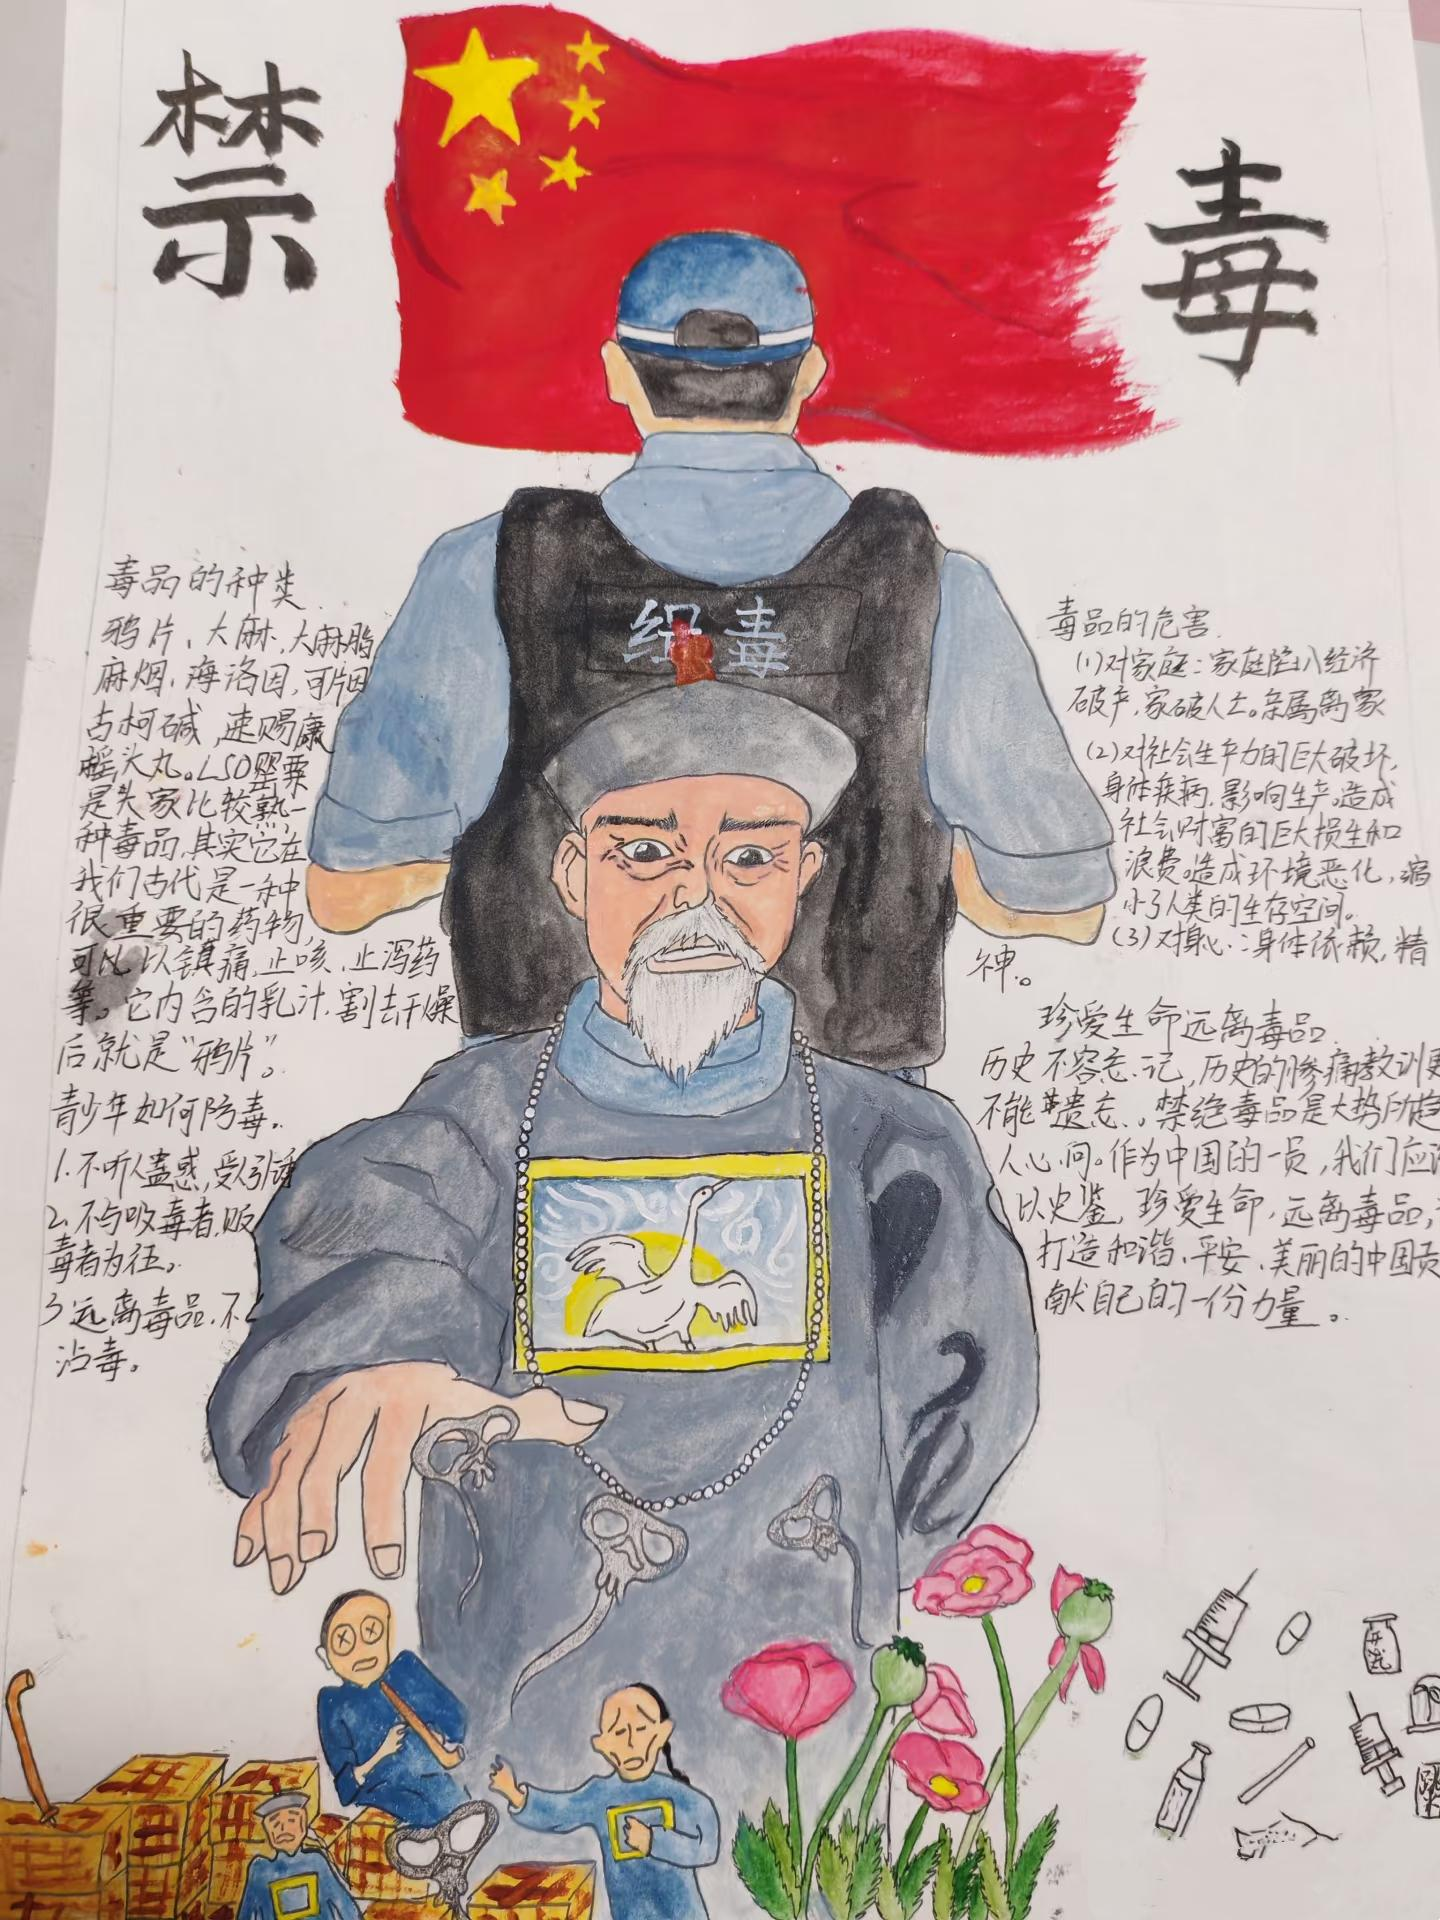 禁毒
缉毒
毒品的种类
鸦片、大麻、大麻脂
麻烟、海洛因、可片因
古柯碱,速赐康
摇头丸。LSD罂粟
是头家比较熟一
种毒品,其实它在
我们古代是一种
很重要的药物,
可以镇痛、止咳、止泻药
等。它内含的乳汁,割去干燥
后就是“鸦片”。
青少年如何防毒。
1.不听人蛊惑,受人引诱
2.不与吸毒者,贩
毒者为伍。
3远离毒品,不
沾毒。
毒品的危害
(1)对家庭:家庭陷入经济
破产,家破人亡。亲属离家
(2)对社会生产力的巨大破坏,
身体疾病,影响生产。造成
社会财富的巨大损生和
浪费。造成环境恶化,缩
小了人类的生存空间。
(3)对身心:身体依赖,精
神。
珍爱生命远离毒品
历史不容忘记,历史的惨痛教训更
不能遗忘。禁绝毒品是大势所趋
人心向。作为中国的一员,我们应
以史鉴,珍爱生命,远离毒品,
打造和谐、平安、美丽的中国贡
献自己的一份力量。